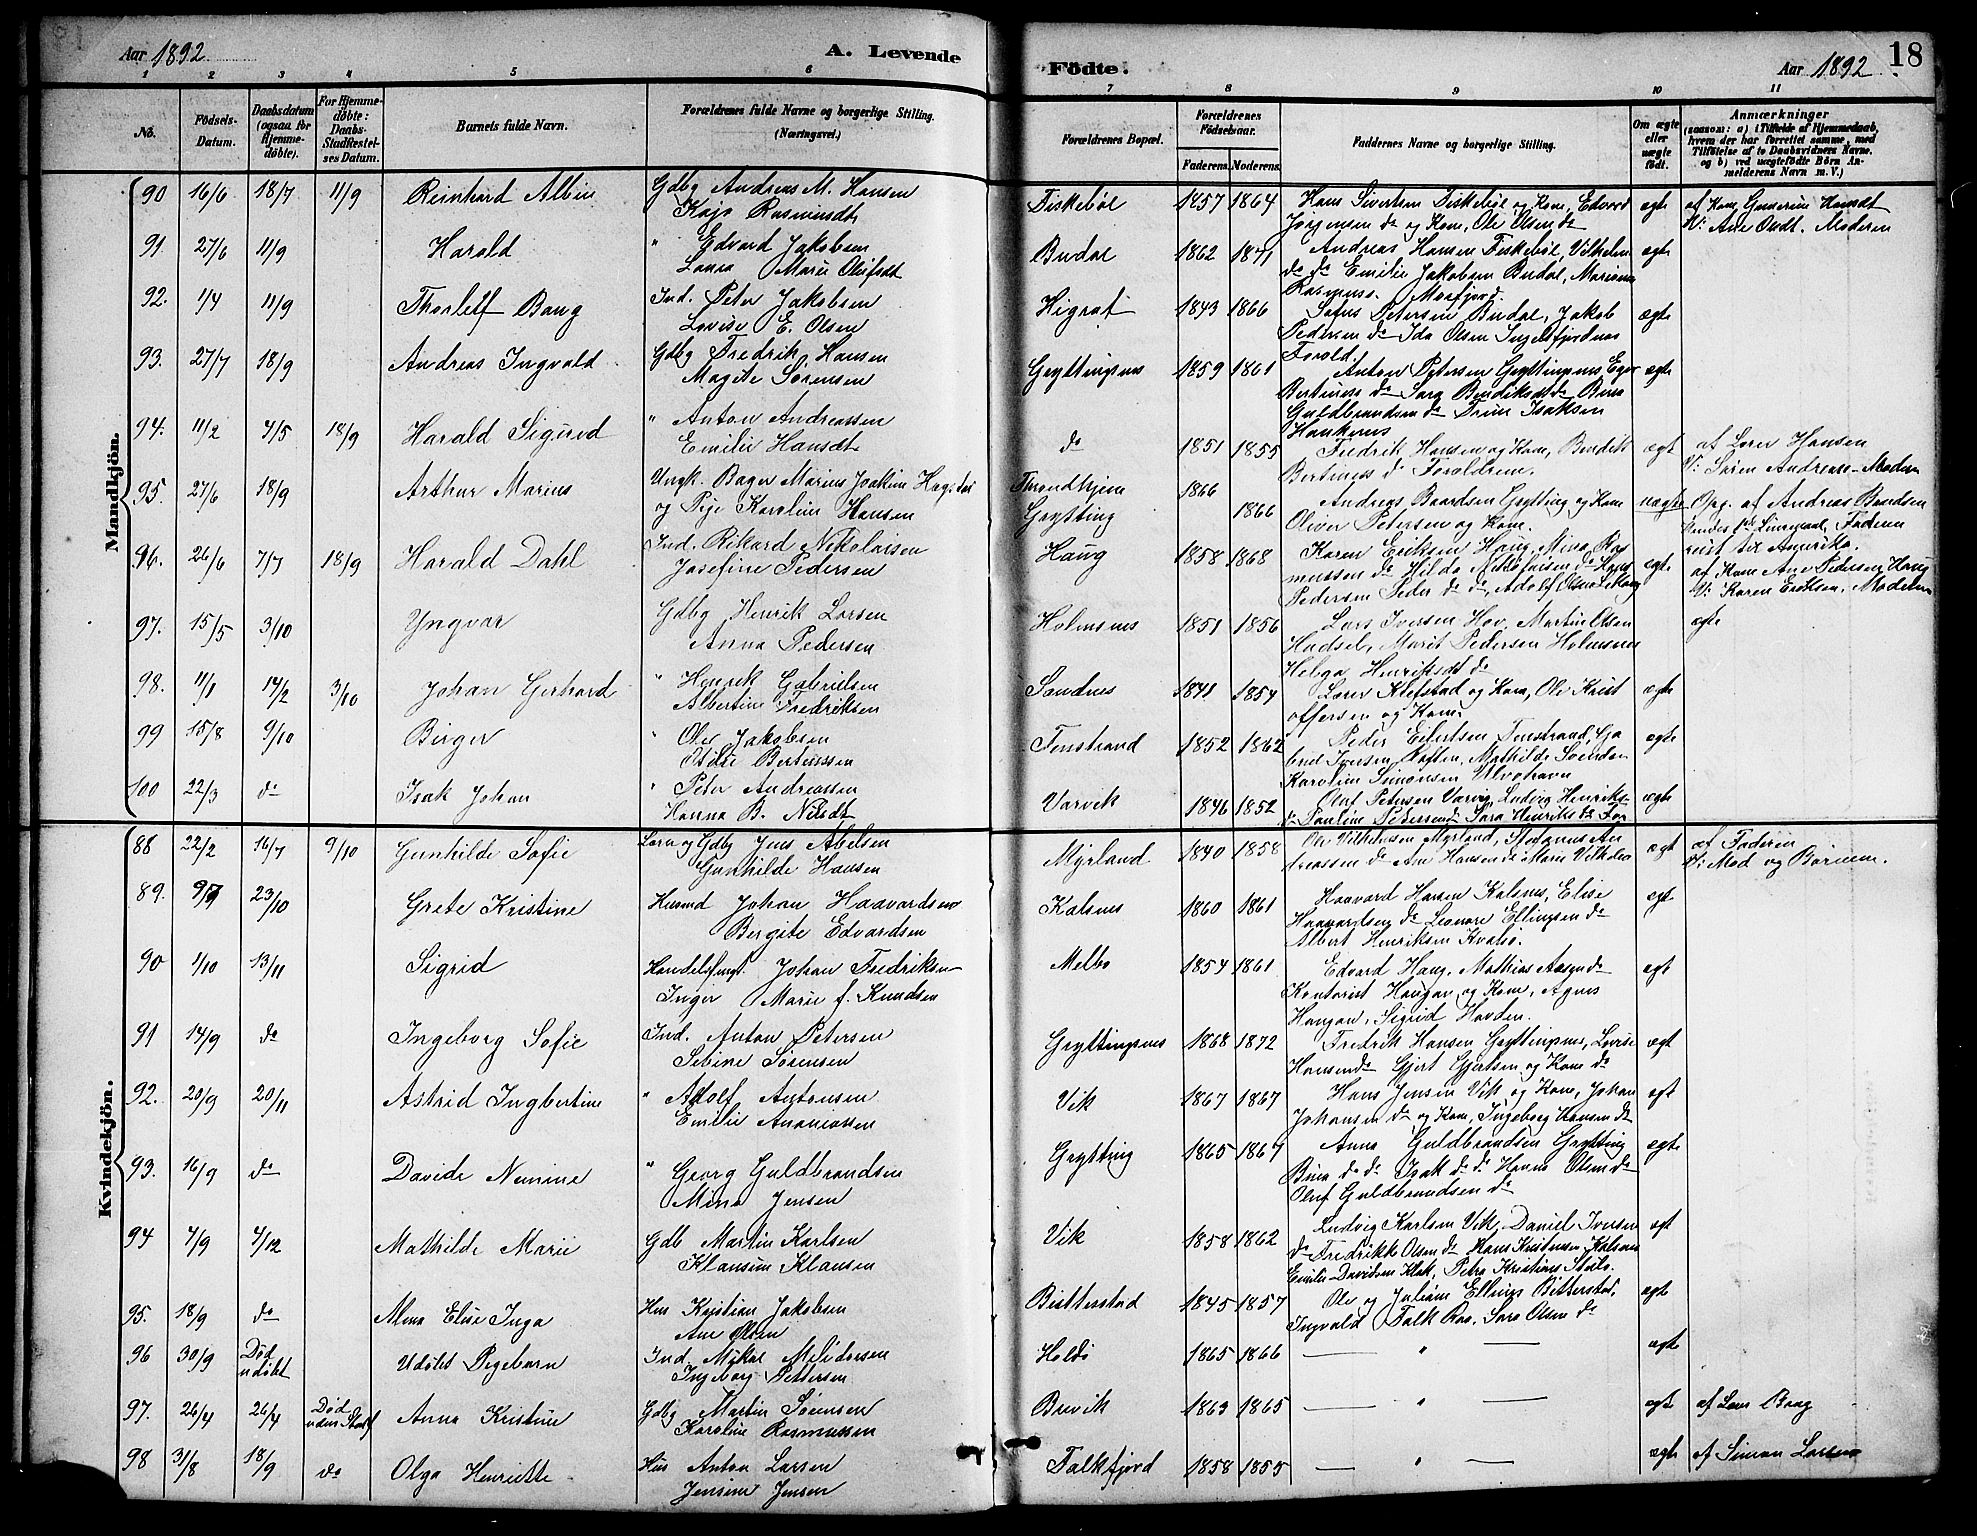 Aar 1892
A. Levende
Födte.
Aar 1892
18
1 2 3 4 5 6 7 8 9 10 11
No.
Födsels-
Datum.
Daabsdatum
(ogsaa for
Hjemme-
döbte).
For Hjemme-
döbte:
Daabs-
Stadfæstel-
ses Datum.
Barnets fulde Navn.
Forældrenes fulde Navne og borgerlige Stilling.
(Næringsvei.)
Forældrenes Bopæl.
Forældrenes
Födselsaar.
Faderens. Moderens.
Faddernes Navne og borgerlige Stilling.
Om ægte
eller
uægte
födt.
Anmærkninger
(saasom: a) i Tilfælde af Hjemmedaab,
hvem der har forrettet samme, med
Tilföielse af to Daabsvidners Navne,
og b) ved uægtefödte Börn An-
melderens Navn m. V.)
Mandkjön.
90 16/6 18/7 11/9 Reinhard Albin Gdbg Andreas M. Hansen
Kaja Rasmusdt
Fiskebøl 1857 1864 Hans Sivertsen Fiskebøl og Kone, Edvard
Jørgensen do og Kone, Ole Olsen do
ægte
V: Ane Moderen
91 27/6 11/9 Harald " Edvard Jakobsen
Laura Marie
Budal 1862 1871 Andreas Hansen Fiskebøl, Vilhelm
do do Emilie Jakobsen Budal, Mariane
Rasmuss. Morfjord.
ægte
92. 1/4 11/9 Thorleif Bang Ind. Peter Jakobsen
Lovise E. Olsen
Higrat 1843 1866 Sofus Petersen Budal, Jakob
Pedersen do Ida Olsen Ingelsfjordnes
Forold.
ægte
93. 27/7 18/9 Andreas Ingvald Gdbg Fredrik Hansen
Magite Sørensen
Gryttingnes 1859 1861 Anton Petersen Gryttingnes
Bertinuss do Sara Bendiksdt do
Guldbrandsen do Isaksen
ægte
94. 11/2 4/5 18/9 Harald Sigurd " Anton Andreassen
Emilie Hansdt
do 1851 1855 Fredrik Hansen og Kone, Bendik
Bertines do Forældrene.
ægt
af Hansen
V: Søren Andreass. Moderen
95. 27/6 18/9 Arthur Marius Ungk. Bager Marius Joakim
og Pige Karoline Hansen
Throndhjem
Grytting
1866
1866
Andreas Baardsen Grytting og Kone
Oliver Petersen og Kone.
uægte
Opg. af Andreas Baardsen
Faderen
reist til Amerika.
96. 26/6 7/7 18/9 Harald Dahl Ind. Rikard Nikolaisen
Josefine Pedersen
Haug 1858 1868 Karen Eriksen Haug, Mina Ras
mussen do Hilda Nikolaisen do
Pedersen Peder do do, Adolf Olsen
ægte
af Kone Ane Pedersen Haug
V: Karen Eriksen. Moderen
97. 15/5 3/10 Yngvar Gdbg Henrik Larsen
Anna Pedersen
Holmsnes 1851 1856 Lars Iversen Hov, Martin Olsen
Hadsel, Marit Pedersen Holmsnes
Helga Henriksdt do
ægte
98. 11/1 14/2 3/10 Johan Gerhard " Henrik Gabrielsen
Albertine Fredriksen
Sandnes 1841 1854 Klefstad og Kone, Ole Krist
offersen og Kone.
ægte
99 15/8 9/10 Birger " Ole Jakobsen
Bertinssen
Finstrand 1852 1862 Peder Eilertsen Finstrand, Ga
briel Iversen, Mathilde Svendsen
Karoline Simonsen Ulvohavn
ægte
100 22/3 do Isak Johan " Peter Andreassen
Hanna B. Nilsdt
Varvik 1846 1852 Oluf Petersen Varvig, Ludvig Henriks-
do Pauline Pedersen do Sara Henriks do
ægte
Kvindekjön.
88 22/2 16/7 9/10 Gunhilde Sofie Gdbg Jens Abelsen
Gunhilde Hansen
Myrland 1840 1858 Ole Vilhelmsen Myrland, An
dreassen do Ane Hansen do Marie Vilhelm
ægt
af Faderen
V: Mod og Børnene.
89. 9/7 23/10 Grete Kristine Husmd Johan Haavardsen
Bergite Edvardsen
Kalsnes 1860 1861 Haavard Hansen Kalsnes, Elise
Haavardsen do Leonore Ellingsen do
Albert Henriksen Kvalsø.
ægt
90 1/10 13/11 Sigrid Johan Fredriksen
Inger Marie f. Knudsen
Melbo 1854 1861 Edvard Haug, Mathias do
Kontorist Haugan og Kone, Agnes
Haugan, Sigrid Havden.
ægt
91 14/9 do Ingeborg Sofie Ind. Anton Petersen
Sebine Sørensen
Gryttingnes 1868 1872 Fredrik Hansen Gryttingnes, Lovise
Hansen do Gjert Gjertsen og Kone do
ægt
92. 20/9 20/11 Astrid Ingbertine " Adolf Antonsen
Emilie Ananiassen
Vik 1867 1867 Hans Jensen Vik og Kone, Johan
Johansen do og Kone, Ingeborg Hansen do
ægt
93. 16/9 do Davide Nemine " Georg Guldbrandsen
Mina Jensen
Grytting 1865 1867 Anna Guldbrandsen Grytting
do do Isak do do Hanna Olsen do
Oluf Guldbrandsen do
ægte
94 4/9 4/12 Mathilde Marie Gdb Martin Karlsen
Klausine Klausen
Vik 1858 1862 Ludvig Karlsen Vik, Daniel Iversen
do Fredrikke Olsen do Hans Kristensen Kalsnes
Emilie Davidsen Klak, Petra Kristians Steilo.
ægt
95. 18/9 do Mina Elise Inga Hus Kristian Jakobsen
Ane Olsen
Bitterstad 1845 1857 Ole og Juliane Ellings Bitterstad,
Ingvald Falk Ras. Sara Olsen do
ægt
96 30/9 Død
udøbt Udøbt Pigebarn Ind. Mikal
Ingeborg Pettersen
Holdø 1865 1866 — " — ægte
97. 26/4 26/4 Død
uden Stadf Anna Kristine Gdbg Martin Sørensen
Karoline Rasmussen
Brevik 1863 1865 — " — ægt af Baag
98 31/8 18/9 do Olga Henriette Hus Anton Larsen
Jensine Jensen
Falkfjord 1858 1855 — " — ægte af Simon Larsen